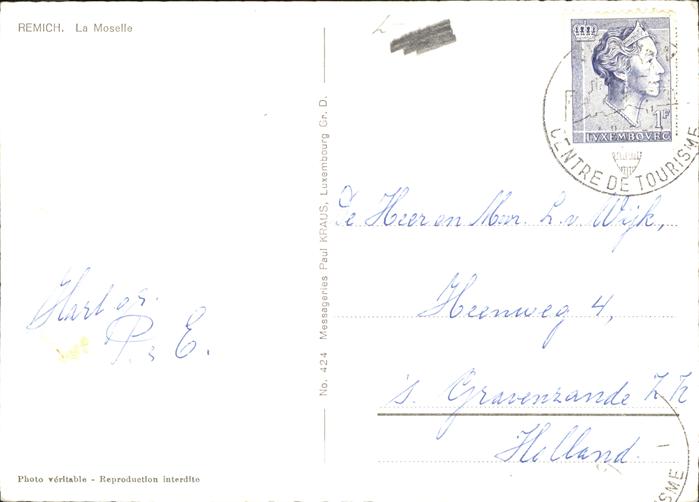 REMICH. La Moselle
1F
LUXEMBOURG
CENTRE DE TOURISME
No. 424 Messageries Paul KRAUS, Luxembourg Gr. D.
Heer en Mevr. L. v. Wijk,
Heenweg 4,
's. Gravenzande Z.H
Holland.
Hart. gr.
P. E.
Photo véritable - Reproduction interdite
ISME